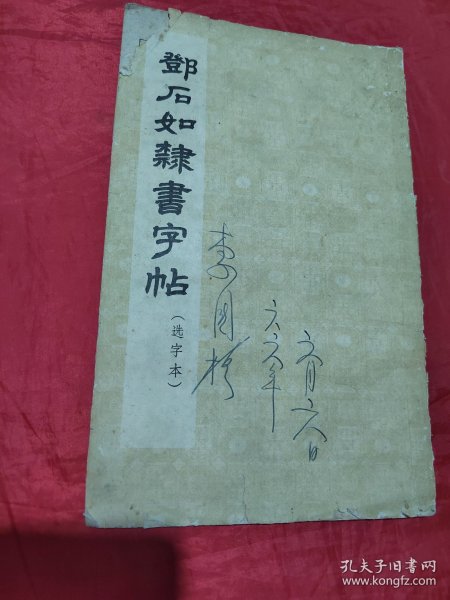 鄧石如隸書字帖
（选字本）
六六年
孔夫子旧书网
www.kongfz.com